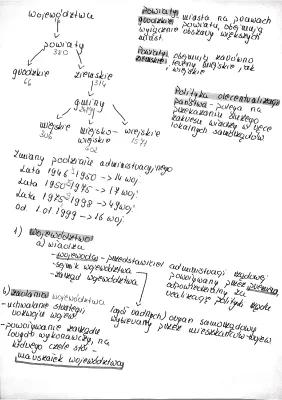 województwa
powiaty
380
grodzkie
66
ziemskie
314
gminy
miejskie
306
miejsko-
wiejskie
602
wiejskie
1571
Powiaty
grodzkie
miasta na prawach
powiatu, obejmują
obszary większych
miast
Powiaty
ziemskie
obejmują zarówno
tereny miejskie jak
i wiejskie
Polityka decentralizacji
państwa - polega na
przekazaniu dużego
zakresu władzy w ręce
lokalnych samorządów
Zmiany podziału administracyjnego
Lata 1946-1950 → 14 woj.
Lata 1950-1975 → 17 woj.
Lata 1975-1998 → 49 woj.
Od 1.01.1999 → 16 woj.
1) Województwo
a) władza
- wojewoda - przedstawiciel administracji rządowej;
powoływany przez premiera,
odpowiedzialny za
realizację polityki rządu
- sejmik województwa
- zarząd województwa
(rada radnych) organ samorządowy
wybierany przez mieszkańców
b) zadania województwa
- uchwalanie strategii
rozwoju
- powoływanie zarządu
(organ wykonawczy), na
którego czele stoi -
marszałek województwa